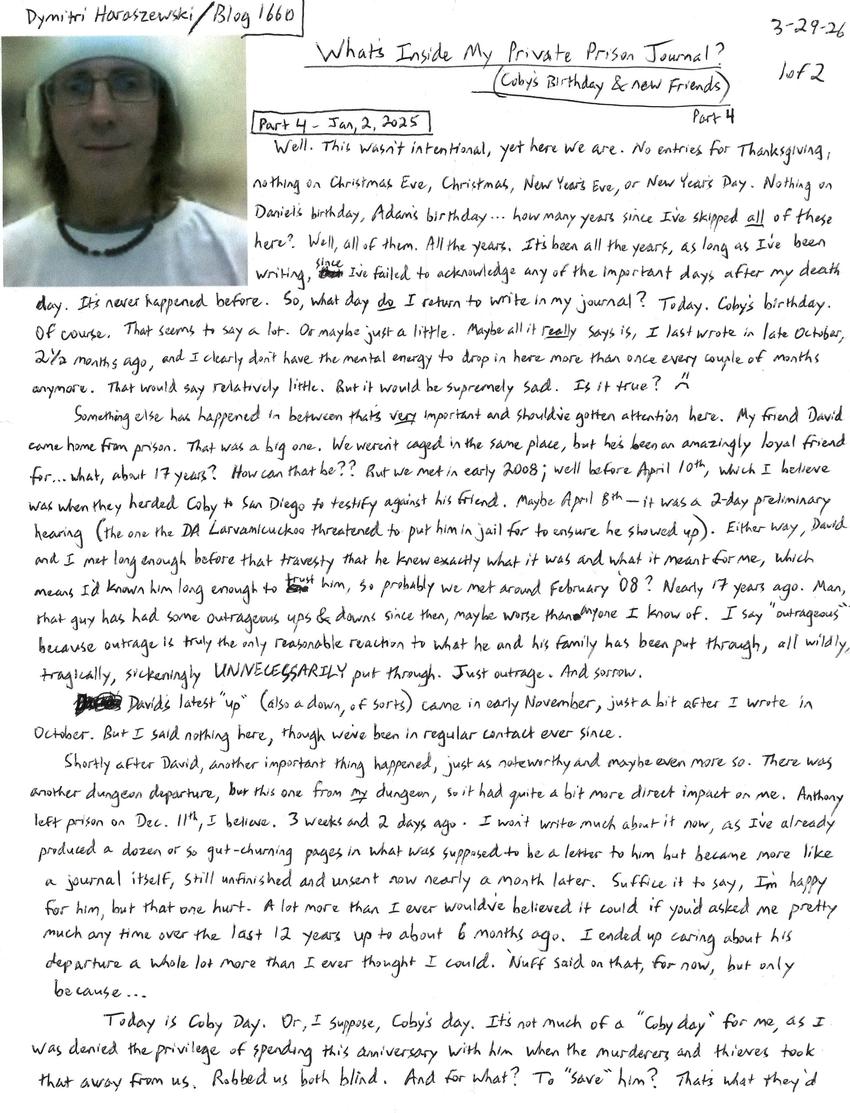 Dymitri Haraszewski/Blog 1660
3-29-26
What's Inside My Private Prison Journal?
1 of 2
(Coby's Birthday & new Friends)
Part 4
Part 4 - Jan, 2, 2025
Well. This wasn't intentional, yet here we are. No entries for Thanksgiving,
nothing on Christmas Eve, Christmas, New Year's Eve, or New Year's Day. Nothing on
Daniel's birthday, Adam's birthday... how many years since I've skipped all of these
here? Well, all of them. All the years. It's been all the years, as long as I've been
writing, since I've failed to acknowledge any of the important days after my death
day. It's never happened before. So, what day do I return to write in my journal? Today. Coby's birthday.
Of course. That seems to say a lot. Or maybe just a little. Maybe all it really says is, I last wrote in late October,
2½ months ago, and I clearly don't have the mental energy to drop in here more than once every couple of months
anymore. That would say relatively little. But it would be supremely sad. Is it true?
Something else has happened in between that's very important and should've gotten attention here. My friend David
came home from prison. That was a big one. We weren't caged in the same place, but he's been an amazingly loyal friend
for... what, about 17 years? How can that be?? But we met in early 2008; well before April 10th, which I believe
was when they herded Coby to San Diego to testify against his friend. Maybe April 8th — it was a 2-day preliminary
hearing (the one the DA Larvamicuckoo threatened to put him in jail for to ensure he showed up). Either way, David
and I met long enough before that travesty that he knew exactly what it was and what it meant for me, which
means I'd known him long enough to trust him, so probably we met around February '08? Nearly 17 years ago. Man,
that guy has had some outrageous ups & downs since then, maybe worse than anyone I know of. I say "outrageous"
because outrage is truly the only reasonable reaction to what he and his family has been put through, all wildly,
tragically, sickeningly UNNECESSARILY put through. Just outrage. And sorrow.
David's latest "up" (also a down, of sorts) came in early November, just a bit after I wrote in
October. But I said nothing here, though we've been in regular contact ever since.
Shortly after David, another important thing happened, just as noteworthy and maybe even more so. There was
another dungeon departure, but this one from my dungeon, so it had quite a bit more direct impact on me. Anthony
left prison on Dec. 11th, I believe. 3 weeks and 2 days ago. I won't write much about it now, as I've already
produced a dozen or so gut-churning pages in what was supposed to be a letter to him but became more like
a journal itself, still unfinished and unsent now nearly a month later. Suffice it to say, I'm happy
for him, but that one hurt. A lot more than I ever would've believed it could if you'd asked me pretty
much any time over the last 12 years up to about 6 months ago. I ended up caring about his
departure a whole lot more than I ever thought I could. 'Nuff said on that, for now, but only
because...
Today is Coby Day. Or, I suppose, Coby's day. It's not much of a "Coby day" for me, as I
was denied the privilege of spending this anniversary with him when the murderers and thieves took
that away from us. Robbed us both blind. And for what? To "save" him? That's what they'd